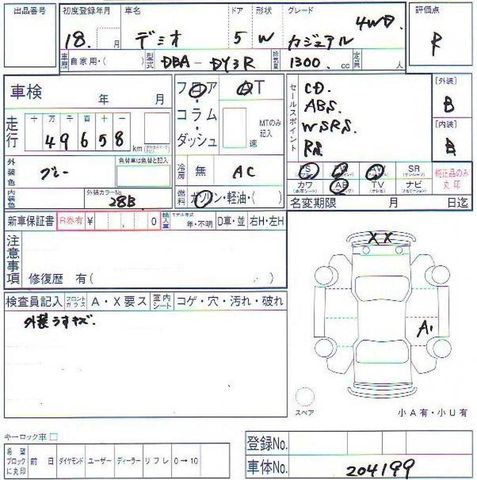 出品番号 初度登録年月 車名 ドア 形状 グレード 評価点
18. 月 デミオ 5 W カジュアル 4WD R
車歴 自家用・( ) 型式 DBA - DY3R 1300 cc 人
車検 年 月 フロア・AT
コラム・
ダッシュ
MTのみ記入 速
セールスポイント
CD.
ABS.
WSRS.
RS
【外装】 B
【内装】 B
走行 十万 万 千 百 十 一
4 9 6 5 8 km
外装色 グレー 色替車は色替と記入
内装色 外装カラーNo. 28B
冷房 無 AC
燃料 ガソリン・軽油・( )
SR 純正品のみ丸印
カワ AB TV ナビ
名変期限 月 日迄
新車保証書 R券有 ¥ 0 輸入車 モデル年式 年・不明 D車・並 右H・左H
注意事項 修復歴 有 ( )
XX
A1
検査員記入 フロントガラス A・X要ス 室内シート コゲ・穴・汚れ・破れ
外装うすキズ.
スペア 小A有・小U有
キーロック車
希望ブロックに丸印 前日 ダイヤモンド ユーザー ディーラー リフレ 0→10
登録No.
車体No. 204199